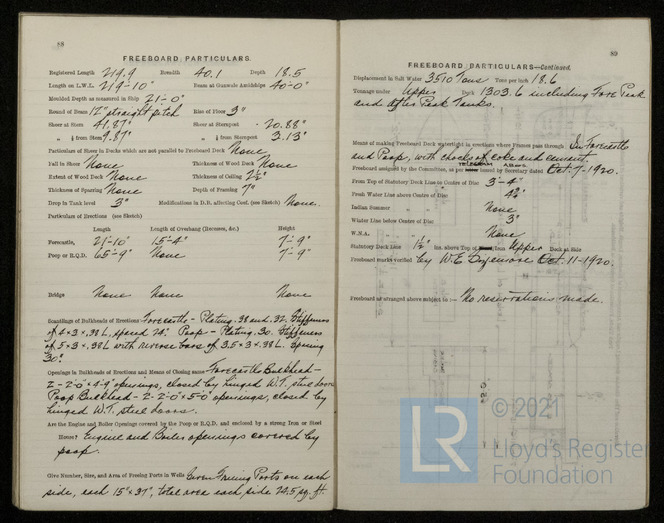 88
FREEBOARD PARTICULARS.
Registered Length 219.9 Breadth 40.1 Depth 18.5
Length on L.W.L. 219'-10" Beam at Gunwale Amidships 40'-0"
Moulded Depth as measured in Ship 21'-0"
Round of Beam 12" straight pitch Rise of Floor 3"
Sheer at Stem 41.87" Sheer at Sternpost 20.88"
" ⅛ from Stem 7.87" " ⅛ from Sternpost 3.13"
Particulars of Sheer in Decks which are not parallel to Freeboard Deck None
Fall in Sheer None Thickness of Wood Deck None
Extent of Wood Deck None Thickness of Ceiling 2½"
Thickness of Sparring None Depth of Framing 7"
Drop in Tank level 3" Modifications in D.B. affecting Coef. (see Sketch) None.
Particulars of Erections (see Sketch)
Length Length of Overhang (Recesses, &c.) Height
Forecastle, 21'-10" 15'-4" 7'-9"
Poop or R.Q.D. 65'-9" None 7'-9"
Bridge None None None
Scantlings of Bulkheads of Erections Forecastle - Plating .38 and .32. Stiffeners
of 4 x 3 x .38 L, spaced 28". Poop - Plating .30. Stiffeners
of 5 x 3 x .38 L with reverse bars of 3.5 x 3 x .38 L. Spacing
30".
Openings in Bulkheads of Erections and Means of Closing same Forecastle Bulkhead -
2 - 2'-0" x 4'-9" openings, closed by hinged W.T. steel doors
Poop Bulkhead - 2 - 2'-0" x 5'-0" openings, closed by
hinged W.T. steel doors.
Are the Engine and Boiler Openings covered by the Poop or R.Q.D. and enclosed by a strong Iron or Steel
House? Engine and Boiler openings covered by
poop.
Give Number, Size, and Area of Freeing Ports in Wells Seven Freeing Ports on each
side, each 15" x 37", total area each side 24.5 sq. ft.
89
FREEBOARD PARTICULARS—Continued.
Displacement in Salt Water 3510 Tons Tons per inch 18.6
Tonnage under Upper Deck 1303.6 including Fore Peak
and After Peak Tanks.
Means of making Freeboard Deck watertight in erections where Frames pass through In Forecastle
and Poop, with chocks of coke and cement.
Freeboard assigned by the Committee, as per issued by Secretary dated Oct. 7-1920.
From Top of Statutory Deck Line to Centre of Disc 3'-4"
Fresh Water Line above Centre of Disc
Indian Summer " " None
Winter Line below Centre of Disc 3"
W.N.A. " " None
Statutory Deck Line 1½" ins. above Top of Iron Upper Deck at Side
Freeboard marks verified by W.E. Oct. 11-1920.
Freeboard as arranged above subject to:— No reservations made.
LR
© 2021
Lloyd's Register
Foundation